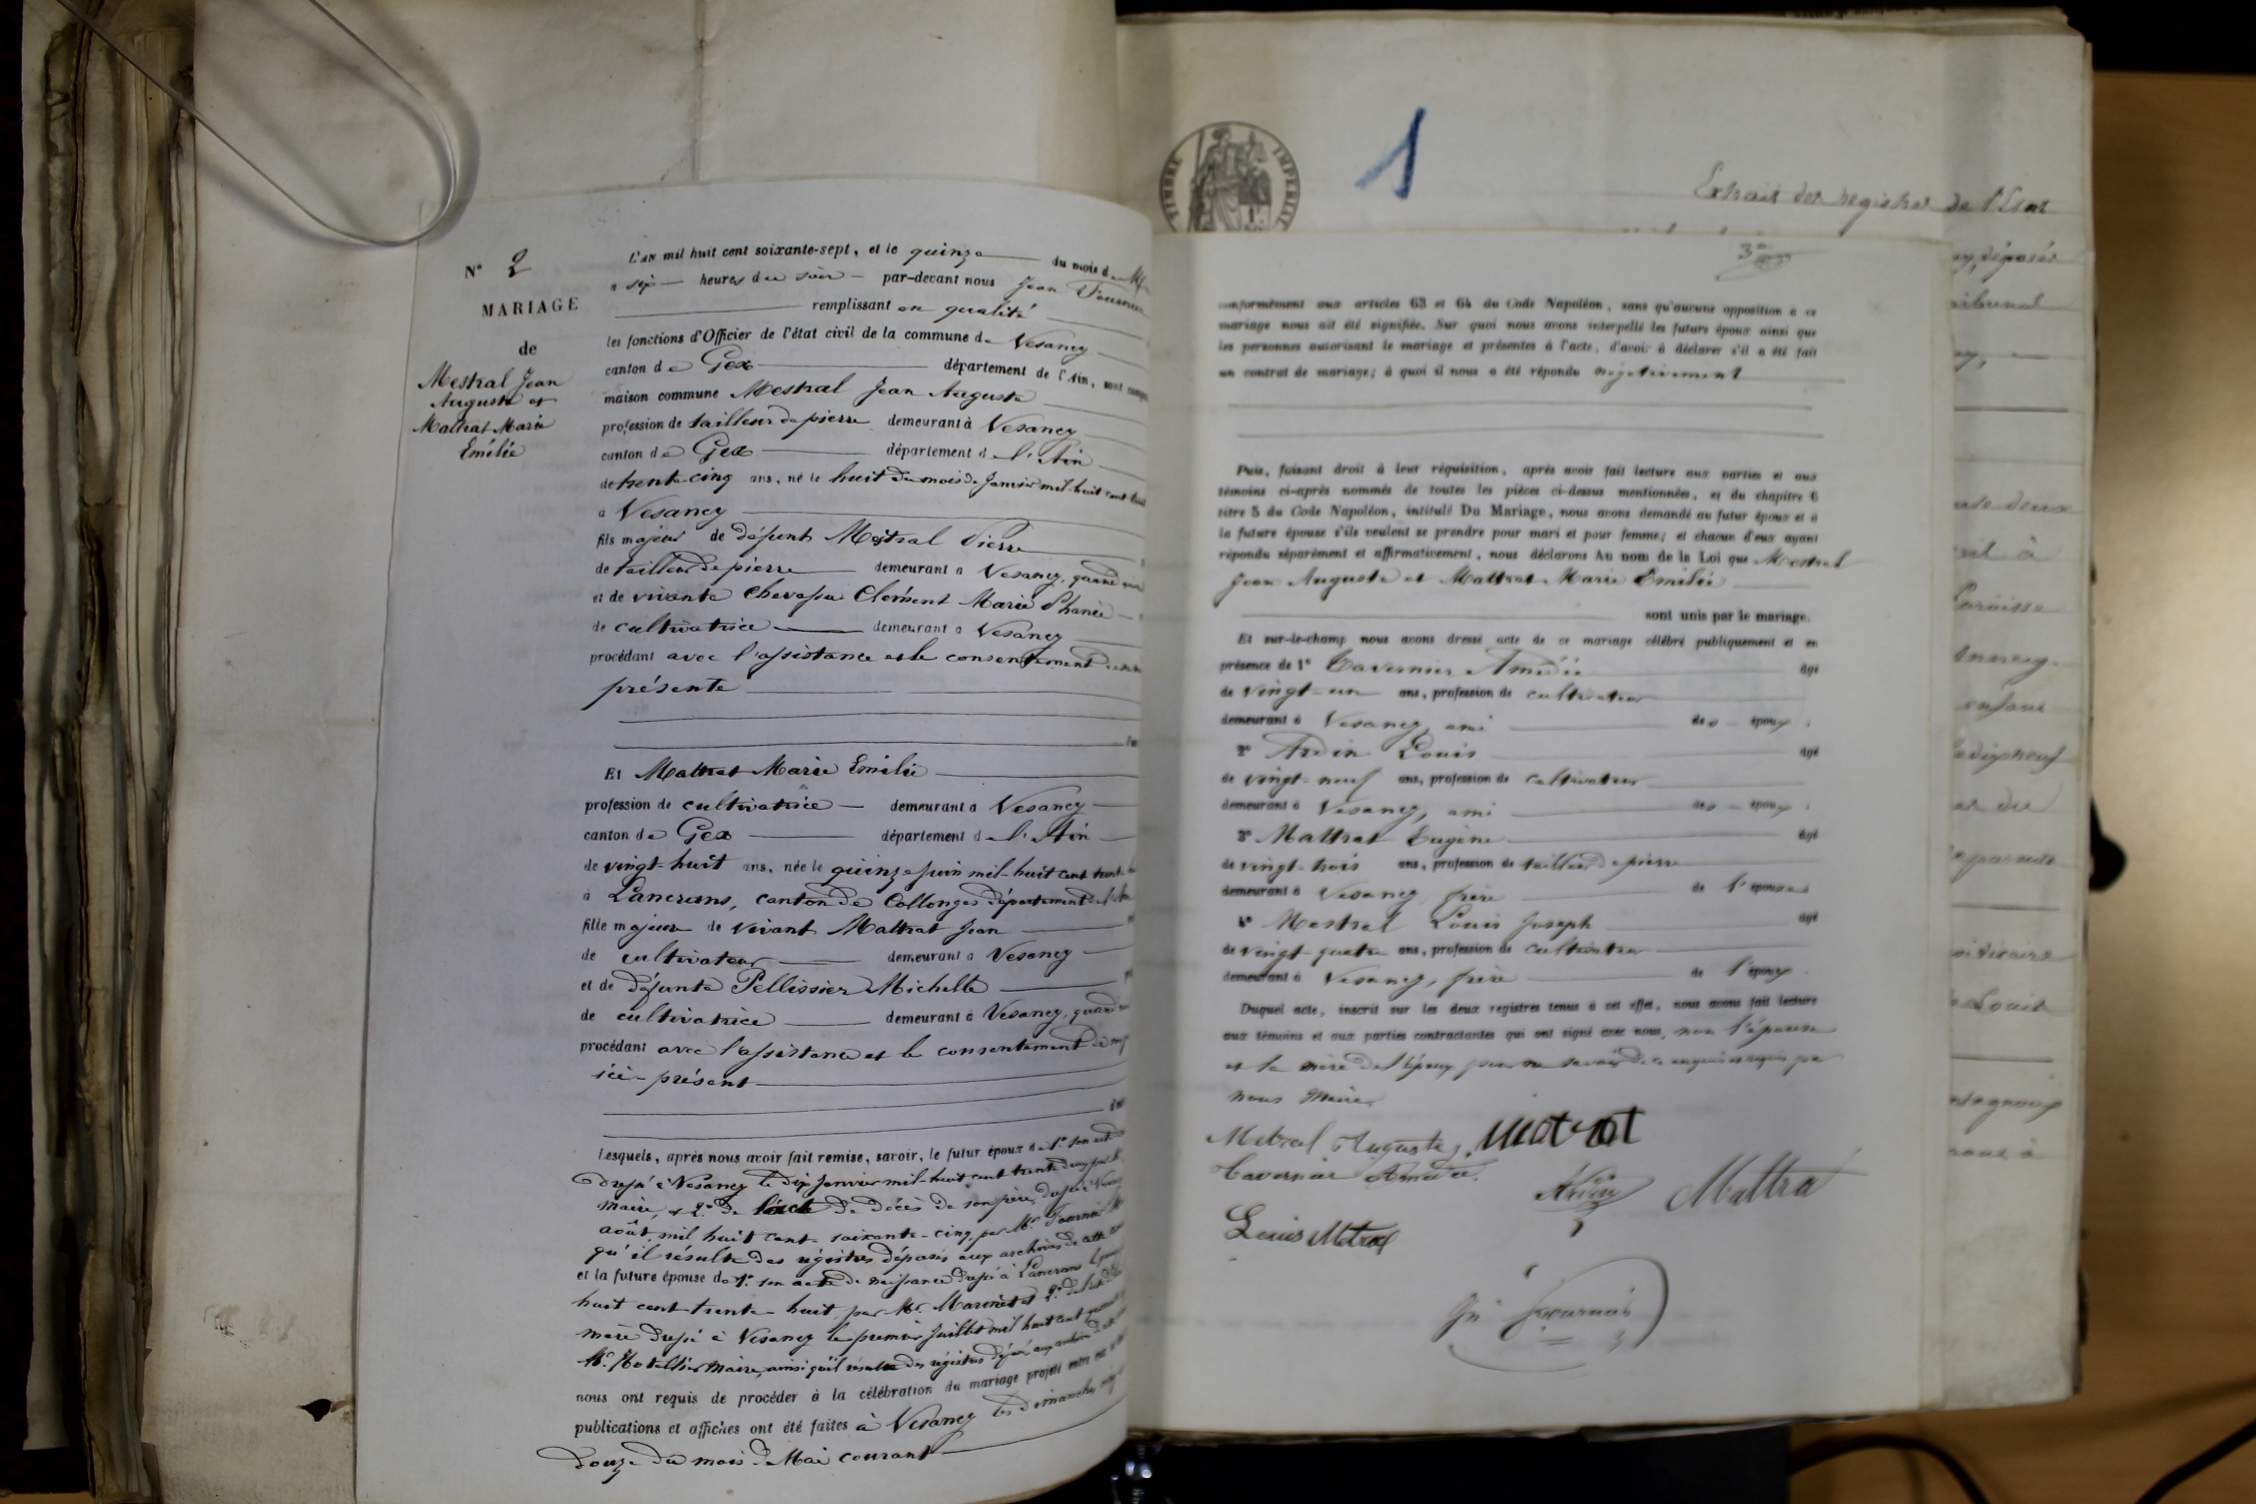 N° 2
MARIAGE
de
Mestral Jean
Auguste et
Mattrat Marie
Emélie
L'AN mil huit cent soixante-sept, et le quinze du mois de
a sept heures du soir par-devant nous Jean Fournier
remplissant en qualité
les fonctions d'Officier de l'état civil de la commune de Vesancy
canton de Gex département de l'Ain, sont
maison commune Mestral Jean Auguste
profession de tailleur de pierre demeurant à Vesancy
canton de Gex département de l'Ain
de trente cinq ans, né le huit du mois de Janvier mil-huit cent
à Vesancy
fils majeur de défunt Mestral Pierre
de tailleur de pierre demeurant à Vesancy, quand
et de vivante Chevassu Clément Marie
de cultivatrice demeurant à Vesancy
procédant avec l'assistance et le consentement de
présente
Et Mattrat Marie Emélie
profession de cultivatrice demeurant à Vesancy
canton de Gex département de l'Ain
de vingt-huit ans, née le quinze Juin mil-huit cent trente
à Lancrans, canton de Collonges département de l'Ain
fille majeure de vivant Mattrat Jean
de cultivateur demeurant à Vesancy
et de défunte Pellissier Michelle
de cultivatrice demeurant à Vesancy, quand
procédant avec l'assistance et le consentement de
ici-présent
Lesquels, après nous avoir fait remise, savoir, le futur époux de 1° son
dressé à Vesancy le dix Janvier mil-huit cent trente deux
maire, et 2° de l'acte de décès de son père, dressé à
août mil huit cent soixante-cinq par Mr Fournier
qu'il résulte des régistres déposés aux archives de cette
et la future épouse de 1° son acte de naissance dressé à Lancrans
huit cent trente-huit par Mr. Marinet et 2° de
mère dressé à Vesancy le premier Juillet mil huit cent
Mr. maire, ainsi qu'il résulte des régistres
nous ont requis de procéder à la célébration du mariage projeté entre
publications et affiches ont été faites à Vesancy les dimanches
douze du mois de Mai courant
TIMBRE IMPERIAL
1
Extrait des registres de l'Etat
conformément aux articles 63 et 64 du Code Napoléon, sans qu'aucune opposition à ce
mariage nous ait été signifiée. Sur quoi nous avons interpellé les futurs époux ainsi que
les personnes autorisant le mariage et présentes à l'acte, d'avoir à déclarer s'il a été fait
un contrat de mariage; à quoi il nous a été répondu négativement
Puis, faisant droit à leur réquisition, après avoir fait lecture aux parties et aux
témoins ci-après nommés de toutes les pièces ci-dessus mentionnées, et du chapitre 6
titre 5 du Code Napoléon, intitulé Du Mariage, nous avons demandé au futur époux et à
la future épouse s'ils veulent se prendre pour mari et pour femme; et chacun d'eux ayant
répondu séparément et affirmativement, nous déclarons Au nom de la Loi que Mestral
Jean Auguste et Mattrat Marie Emélie
sont unis par le mariage.
Et sur-le-champ nous avons dressé acte de ce mariage célébré publiquement et en
présence de 1° Tavernier Amédée âgé
de vingt-un ans, profession de cultivateur
demeurant à Vesancy, ami des époux;
2° Ardin Louis âgé
de vingt-neuf ans, profession de cultivateur
demeurant à Vesancy, ami des époux;
3° Mattrat Eugène âgé
de vingt-trois ans, profession de tailleur de pierre
demeurant à Vesancy frère de l'épouse
4° Mestral Louis Joseph âgé
de vingt-quatre ans, profession de cultivateur
demeurant à Vesancy, frère de l'époux.
Duquel acte, inscrit sur les deux registres tenus à cet effet, nous avons fait lecture
aux témoins et aux parties contractantes qui ont signé avec nous, non l'épouse
et la mère de l'époux pour ne savoir de ce enquis et requis par
nous Maire
Metral Auguste,
Tavernier Amédée.
Ardin
Mattra
Louis Metral
Jn Fournier